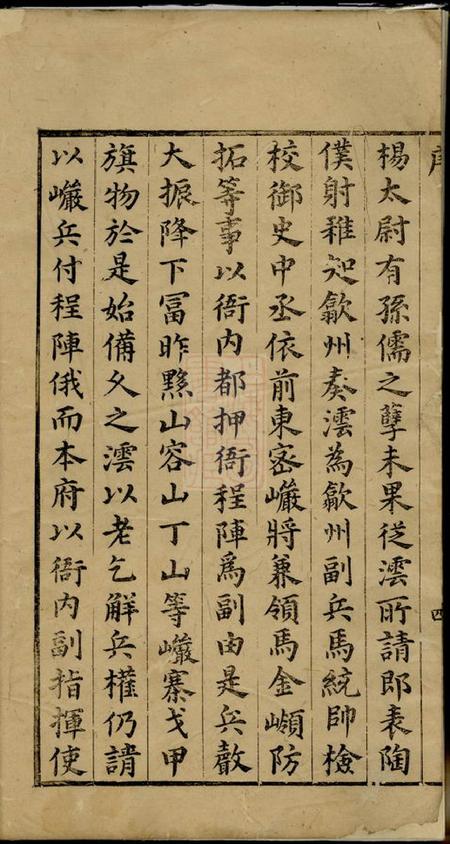 楊太尉有孫儒之孽未果從澐所請郎表陶
僕射稚知歙州奏澐為歙州副兵馬統帥檢
校御史中丞依前東宻巗將兼領馬金嶺防
拓等事以衙内都押衙程陣爲副由是兵聲
大振降下冨昨黟山容山丁山等巗寨戈甲
旗物於是始備久之澐以老乞解兵權仍請
以巗兵付程陣俄而本府以衙内副指揮使
四